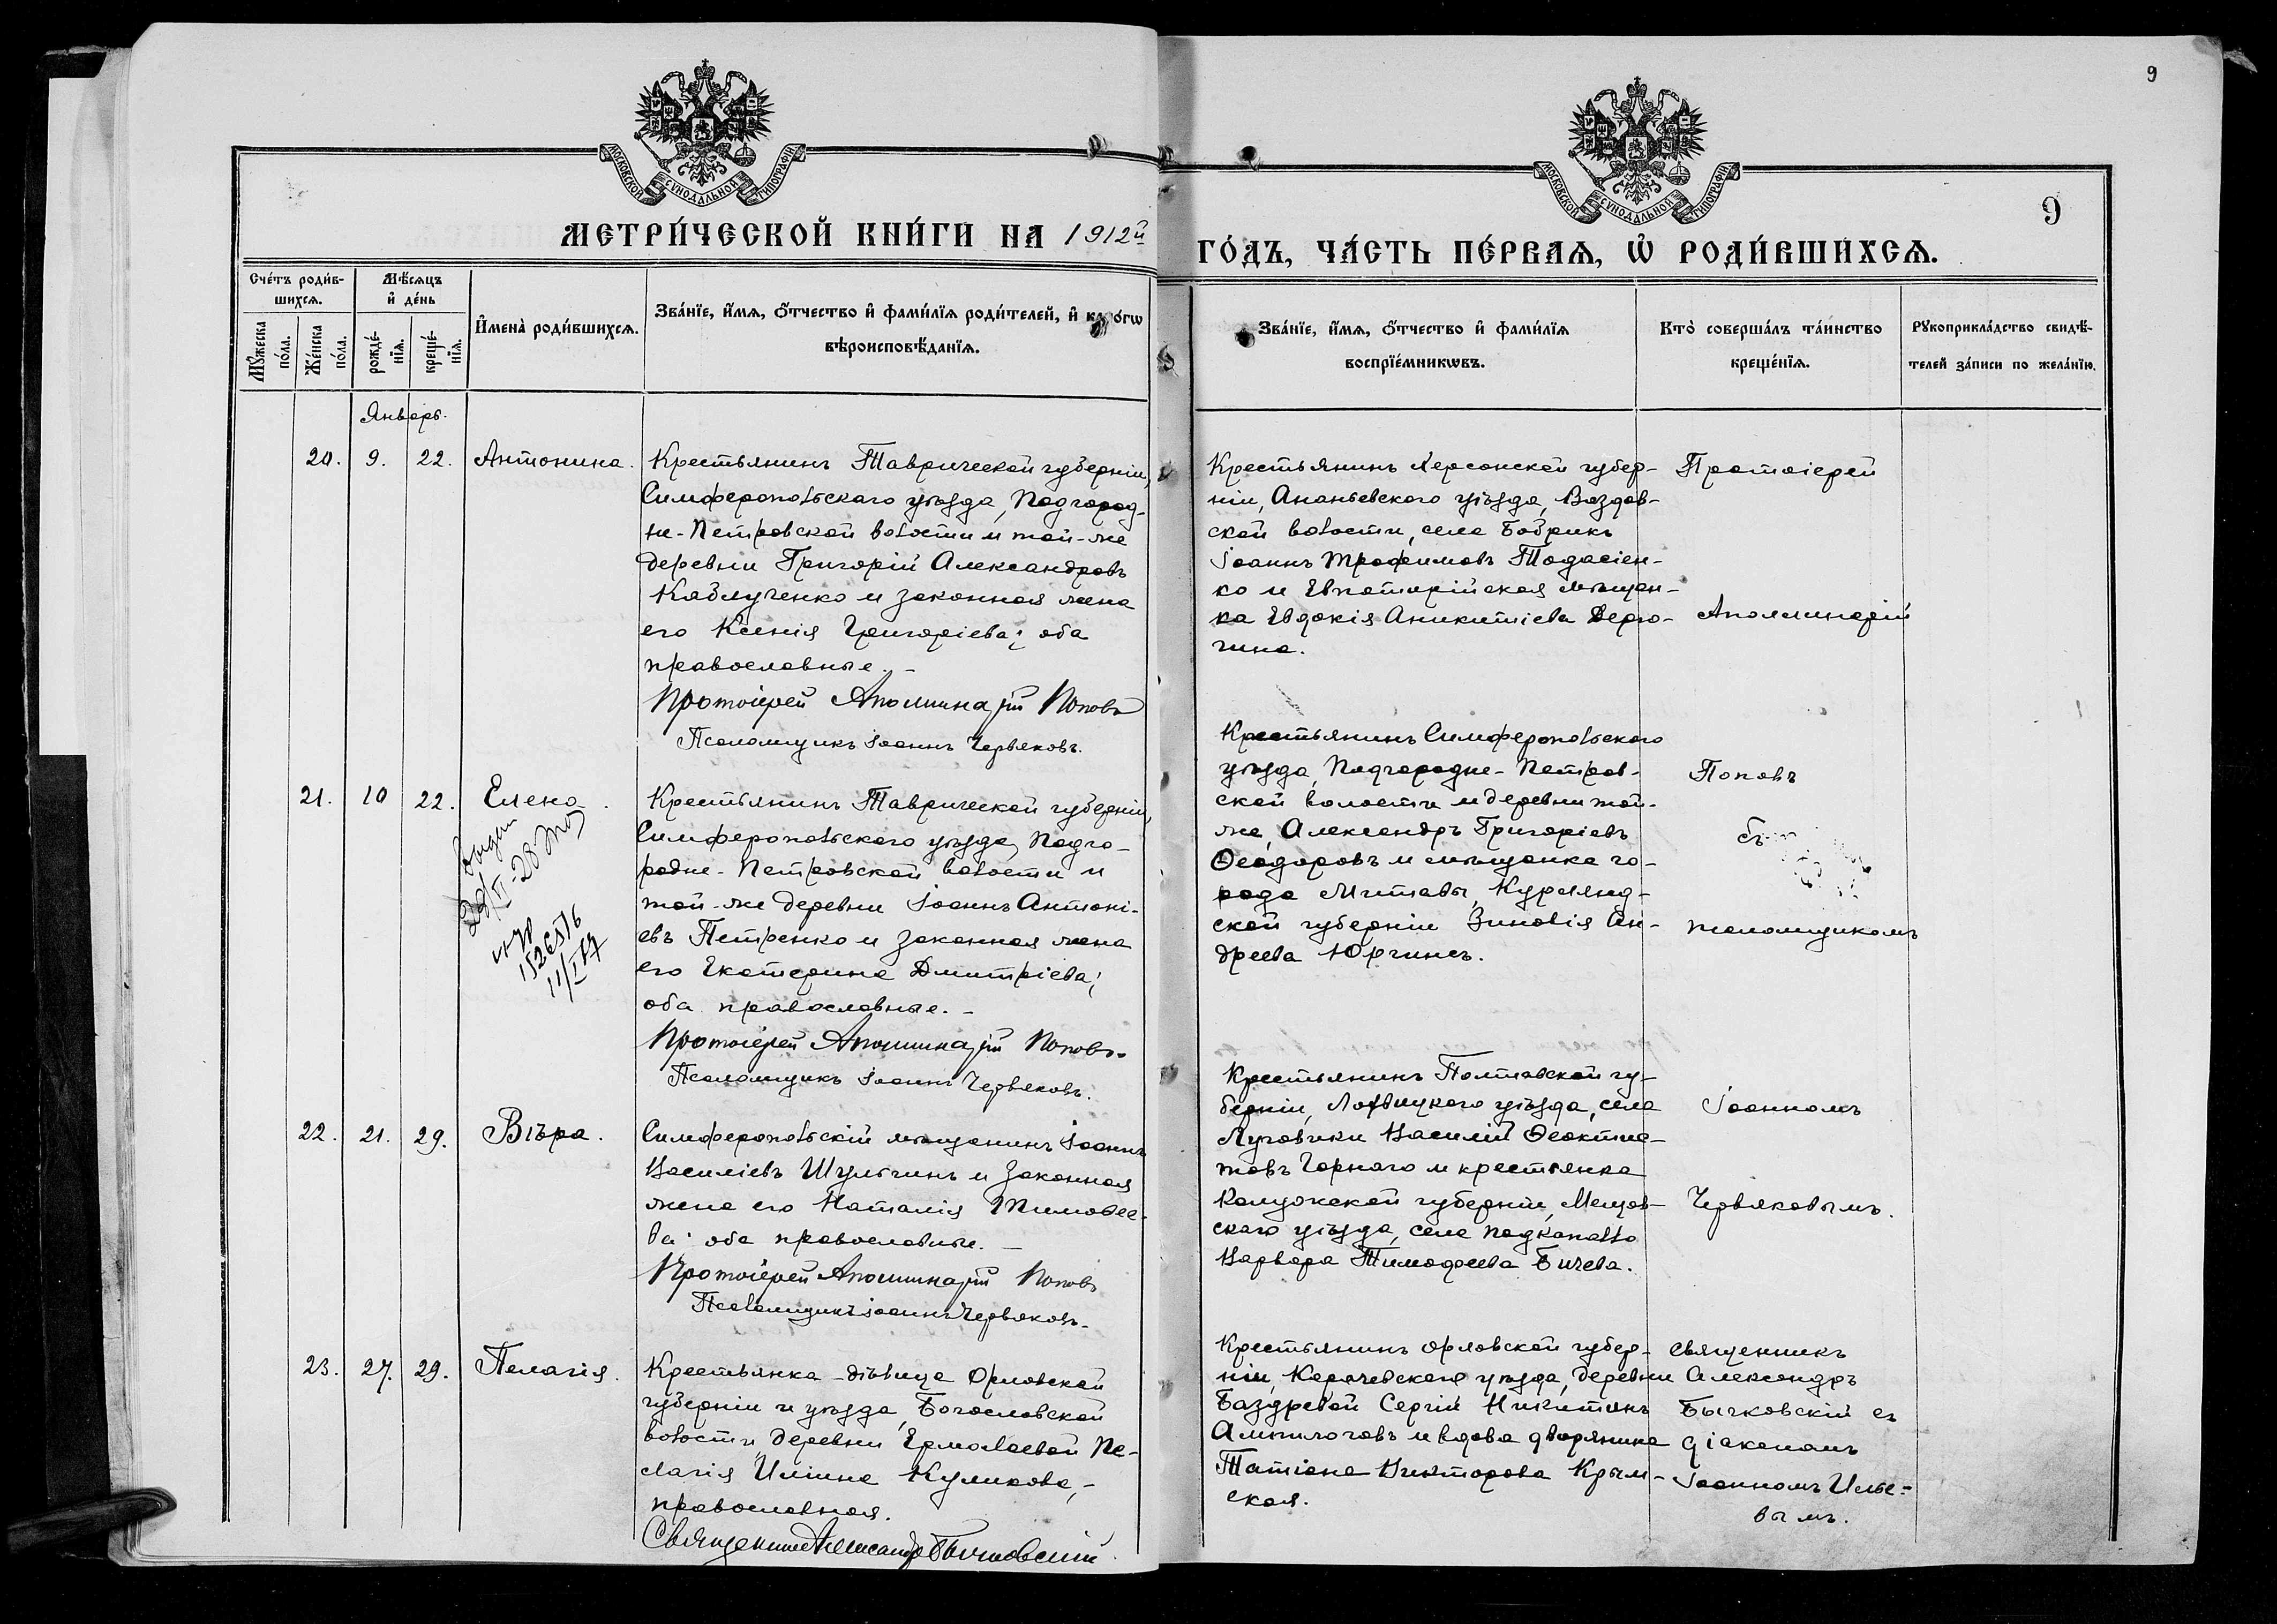 9
МОСКОВСКОЙ СѴНОДАЛЬНОЙ ТИПОГРАФІИ
МОСКОВСКОЙ СѴНОДАЛЬНОЙ ТИПОГРАФІИ
9
МЕТРИ́ЧЕСКОЙ КНИ́ГИ НА 1912й
ГО́ДЪ, ЧА́СТЬ ПЕ́РВАѦ, Ѡ҆ РОДИ́ВШИХСѦ.
Сче́тъ роди́в-
шихсѧ.
Мꙋ́жеска по́ла.
Же́нска по́ла.
Мѣ́сяцъ
и҆ де́нь
рожде́-
нїѧ.
креще́-
нїѧ.
И҆мена̀ роди́вшихсѧ.
Зва́нїе, и҆́мѧ, ѻ҆́тчество и҆ фами́лїѧ роди́телей, и҆
вѣроисповѣ́данїѧ.
Зва́нїе, и҆́мѧ, ѻ҆́тчество и҆ фами́лїѧ
воспрїе́мникѡвъ.
Кто̀ соверша́лъ та́инство
креще́нїѧ.
Рꙋкоприкла́дство свидѣ́-
телей за́писи по жела́нїю.
Январь.
20. 9. 22. Антонина.
Крестьянинъ Таврической губерніи,
Симферопольскаго уѣзда, Подгород-
не-Петровской волости и той-же
деревни Григорій Александровъ
Каблученко и законная жена
его Ксенія Григоріева; оба
православные.
Протоіерей Аполлинарій Поповъ
Псаломщикъ Іоаннъ Червяковъ.
Крестьянинъ Херсонской губер-
ніи, Ананьевскаго уѣзда,
ской волости, села Бобрикъ
Іоаннъ Трофимовъ
ко и Евпаторійская мѣщан-
ка Евдокія Аникитіева Дерю-
гина.
Протоіерей
Аполлинарій
21. 10 22. Елена.
22/VI-28
1526516
Крестьянинъ Таврической губерніи,
Симферопольскаго уѣзда, Подго-
родне-Петровской волости и
той-же деревни Іоаннъ Антоні-
евъ Петренко и законная жена
его Екатерина Дмитріева;
оба православные.
Протоіерей Аполлинарій Поповъ
Псаломщикъ Іоаннъ Червяковъ.
Крестьянинъ Симферопольскаго
уѣзда, Подгородне-Петров-
ской волости и деревни той-
же, Александръ Григоріевъ
Ѳеодоровъ и мѣщанка го-
рода Митавы, Курлянд-
ской губерніи Зиновія Ан-
дреева Юргинсъ.
Поповъ
съ
псаломщикомъ
22. 21. 29. Вѣра.
Симферопольскій мѣщанинъ Іоаннъ
Василіевъ Шульгинъ и законная
жена его Наталія Тимоѳее-
ва; оба православные.
Протоіерей Аполлинарій Поповъ
Псаломщикъ Іоаннъ Червяковъ.
Крестьянинъ Полтавской гу-
берніи, Лохвицкаго уѣзда, села
Луговики Василій Ѳеоктис-
товъ Горнаго и крестьянка
Калужской губерніи, Мещов-
скаго уѣзда, села Подкопаево
Варвара Тимофеева Бичева.
Іоанномъ
Червяковымъ.
23. 27. 29. Пелагія.
Крестьянка-дѣвица Орловской
губерніи и уѣзда, Богословской
волости, деревни Ермолаевой Пе-
лагія Иліина Куликова,-
православная.
Священникъ Александръ Бычковскій
Крестьянинъ Орловской губер-
ніи, Карачевскаго уѣзда, деревни
Баздревой Сергій Никитинъ
Ампилоговъ и вдова дворянина
Татіана Викторова Крым-
ская.
Священникъ
Александръ
Бычковскій съ
діакономъ
Іоанномъ Илье-
вымъ.